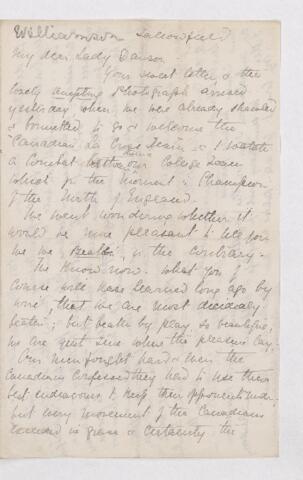 Williamson
My dear Lady Dawson
Your sweet letter & the
lovely amusing Photograph arrived
yesterday when we were already shawled
& bonnetted to go & welcome the
Canadian La Crosse Team, & to watch
a Combat with our College Team
which for the moment is Champion
of the North of England.
We went wondering whether it
would be more pleasant to tell you
we were Beaten, or the contrary.
We know now. What you
course will have learned long ago by
wire, that we are most decidedly
beaten; but beaten by play, so beautiful,
we are quite sure where the pleasure lay.
Our men fought hard & even the
Canadians confessed they had to use their
best endeavours to keep their opponents under
but every movement of the Canadians
in grace & certainty the